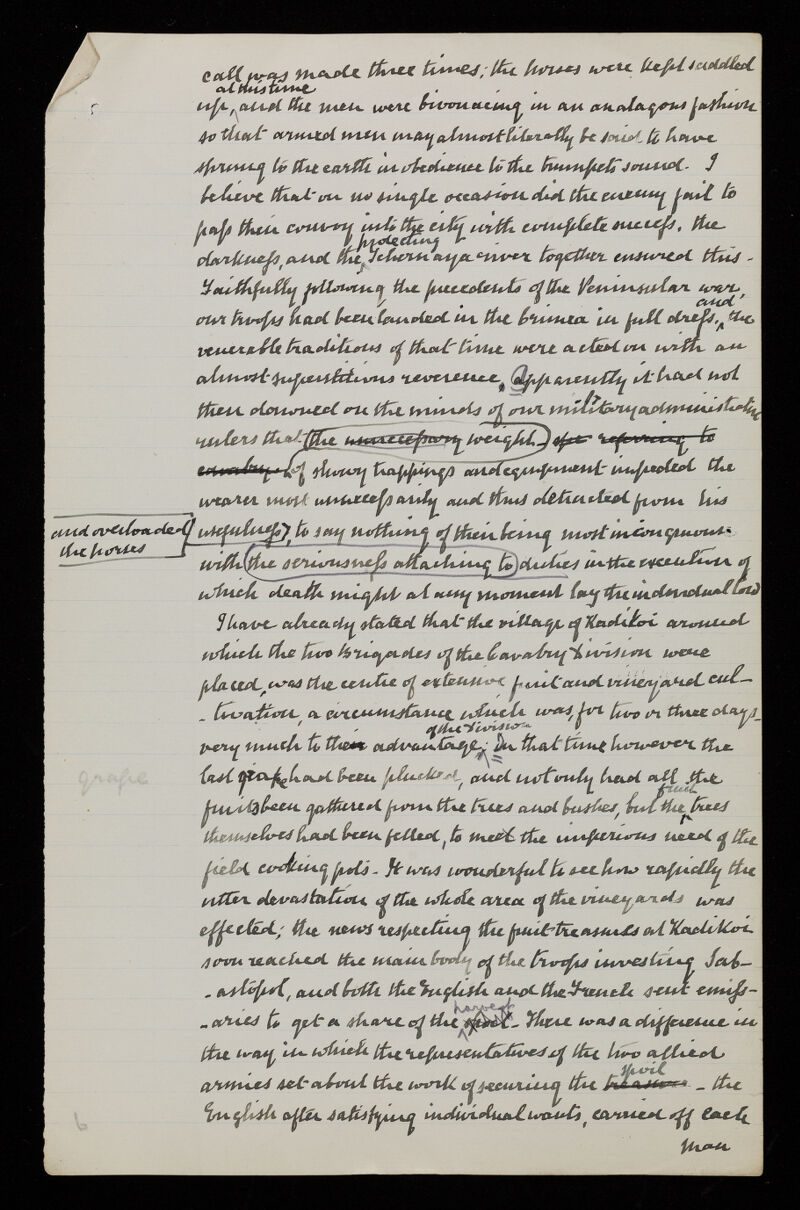 5
call was made three times; the horses were kept saddled
at this time
up, and the men were bivouacing in an analagous fashion
so that armed men may almost literally be said to have
sprung to the earth in obedience to the trumpets sound. I
believe that on no single occasion did the enemy fail to
pass their convoy into the city with complete success. the
protecting
darkness, and the Tchernaya river together ensured this -
Faithfully following the precedents of the Peninsular war,
and
our troops had been landed in the Crimea in full dress, the
venerable traditions of that time were acted on with an
almost superstitious reverence, apparently it had not
then dawned on the minds of our military administrative
rulers that (the unnecessary weight - referring to
cavalry - of showy trappings and equipment impeded the
wearer most unnecessarily and thus detracted from his
and overloaded
the horses
usefulness), to say nothing of their being most incongruous
with (the seriousness attaching to) duties in the execution of
which death might at any moment lay the individual low
I have already stated that the village of Kadikoi around
which the two Brigades of the Cavalry Division were
placed, was the centre of extensive fruit and vineyard cul-
- tivation, a circumstance which was, for two or three days -
of the Division
very much to their advantage; In that time however the
grape
last grape had been plucked, and not only had all the
fruit
fruits been gathered from the trees and bushes, but the trees
themselves had been felled, to meet the imperious need of the
field cooking pots - It was wonderful to see how rapidly the
utter devastation of the whole area of the vineyards was
effected; the news respecting the fruit treasures at Kadikoi
soon reached the main body of the troops investing Seb-
- astopol, and both the English and the French sent emiss-
harvest
- aries to get a share of the - There was a difference in
the way in which the representatives of the two allied
spoil
armies set about the work of securing the treasure - the
6
English after satisfying individual wants, carried off each
man